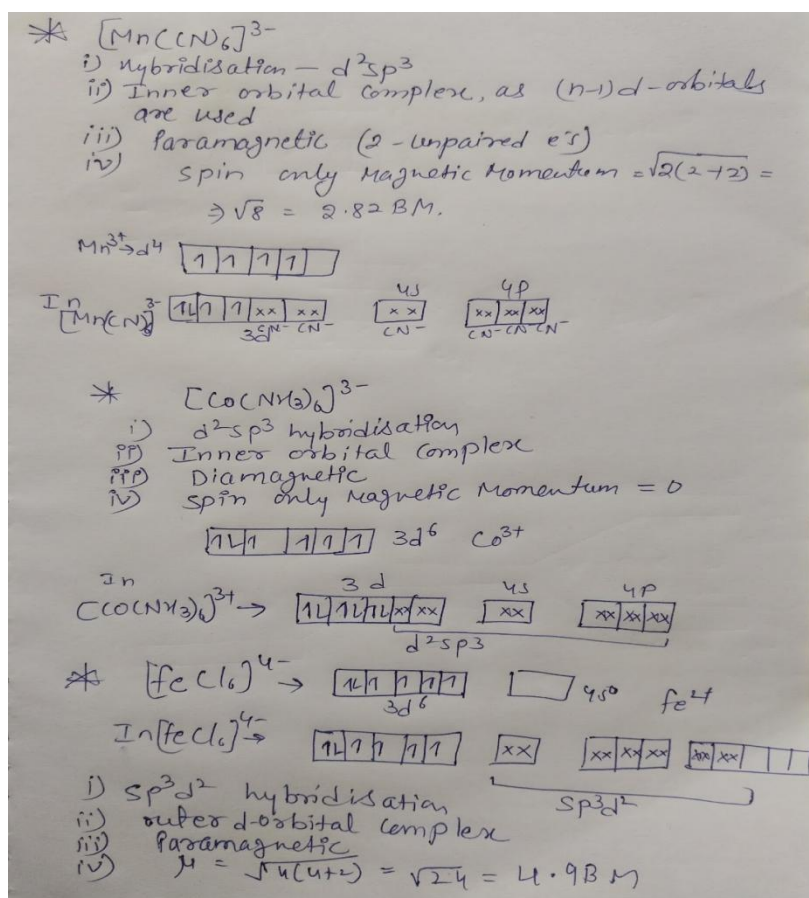 * [Mn(CN)6]3-
i) Hybridisation - d2sp3
ii) Inner orbital complex, as (n-1)d-orbitals
are used
iii) Paramagnetic (2-unpaired e's)
iv) spin only Magnetic Momentum = √2(2+2) =
⇒ √8 = 2.82 BM.
Mn3+→d4 1 1 1 1
In [Mn(CN)6]3- 1L 1 1 xx xx xx xx xx xx
3d 4s 4p
CN- CN- CN- CN- CN- CN-
* [Co(NH3)6]3-
i) d2sp3 hybridisation
ii) Inner orbital complex
iii) Diamagnetic
iv) spin only Magnetic Momentum = 0
1L 1 1 1 1 3d6 Co3+
In 3d 4s 4p
[Co(NH3)6]3+ → 1L 1L 1L xx xx xx xx xx xx
d2sp3
* [FeCl6]4- → 1L 1 1 1 1 4s0 Fe2+
3d6
In [FeCl6]4- → 1L 1 1 1 1 xx xx xx xx xx xx
sp3d2
i) sp3d2 hybridisation
ii) outer d-orbital complex
iii) Paramagnetic
iv) μ = √4(4+2) = √24 = 4.9BM